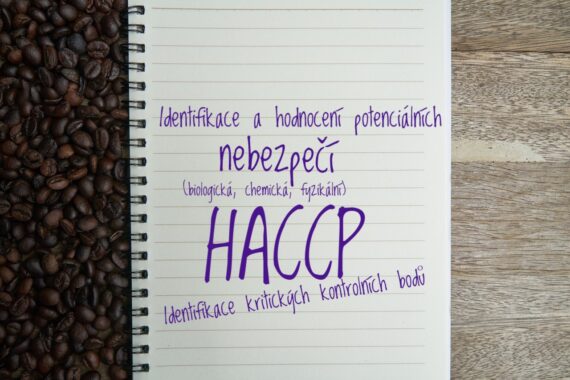 Identifikace a hodnocení potenciálních
nebezpečí
(biologická, chemická, fyzikální)
HACCP
Identifikace kritických kontrolních bodů